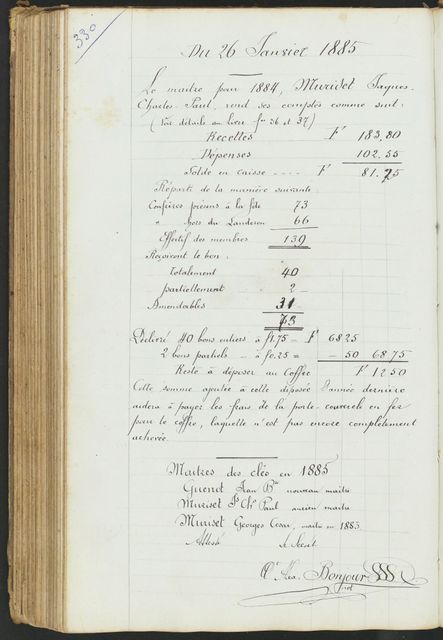 330
Du 26 Janvier 1885
Le maitre pour 1884, Muriset Jaques-
Charles-Paul, rend ses comptes comme suit:
(Voir détails au livre fos 36 et 37)
Recettes F 183.80
Dépenses 102.55
Solde en caisse ---- F 81.25
Réparti de la manière suivante:
Confrères présens à la fête 73
" hors du Landeron 66
Effectif des membres 139
Reçoivent le bon:
Totalement 40
partiellement 2
Amendables 31
73
Délivré 40 bons entiers à f1.75 = F 68 25
2 bons partiels - à f0.25 = - 50 68.75
Reste à déposer au Coffre F 12 50
Cette somme ajoutée à cette déposée l'année dernière
aidera à payer les frais de la porte-couvercle en fer
pour le coffre, laquelle n'est pas encore complètement
achevée.
Maitres des clés en 1885
Guenot Jean Bte nouveau maitre
Muriset Js Chs Paul ancien maitre
Muriset Georges Cesar, maitre en 1883
Atteste le Secrét.
Alex. Bonjour
not